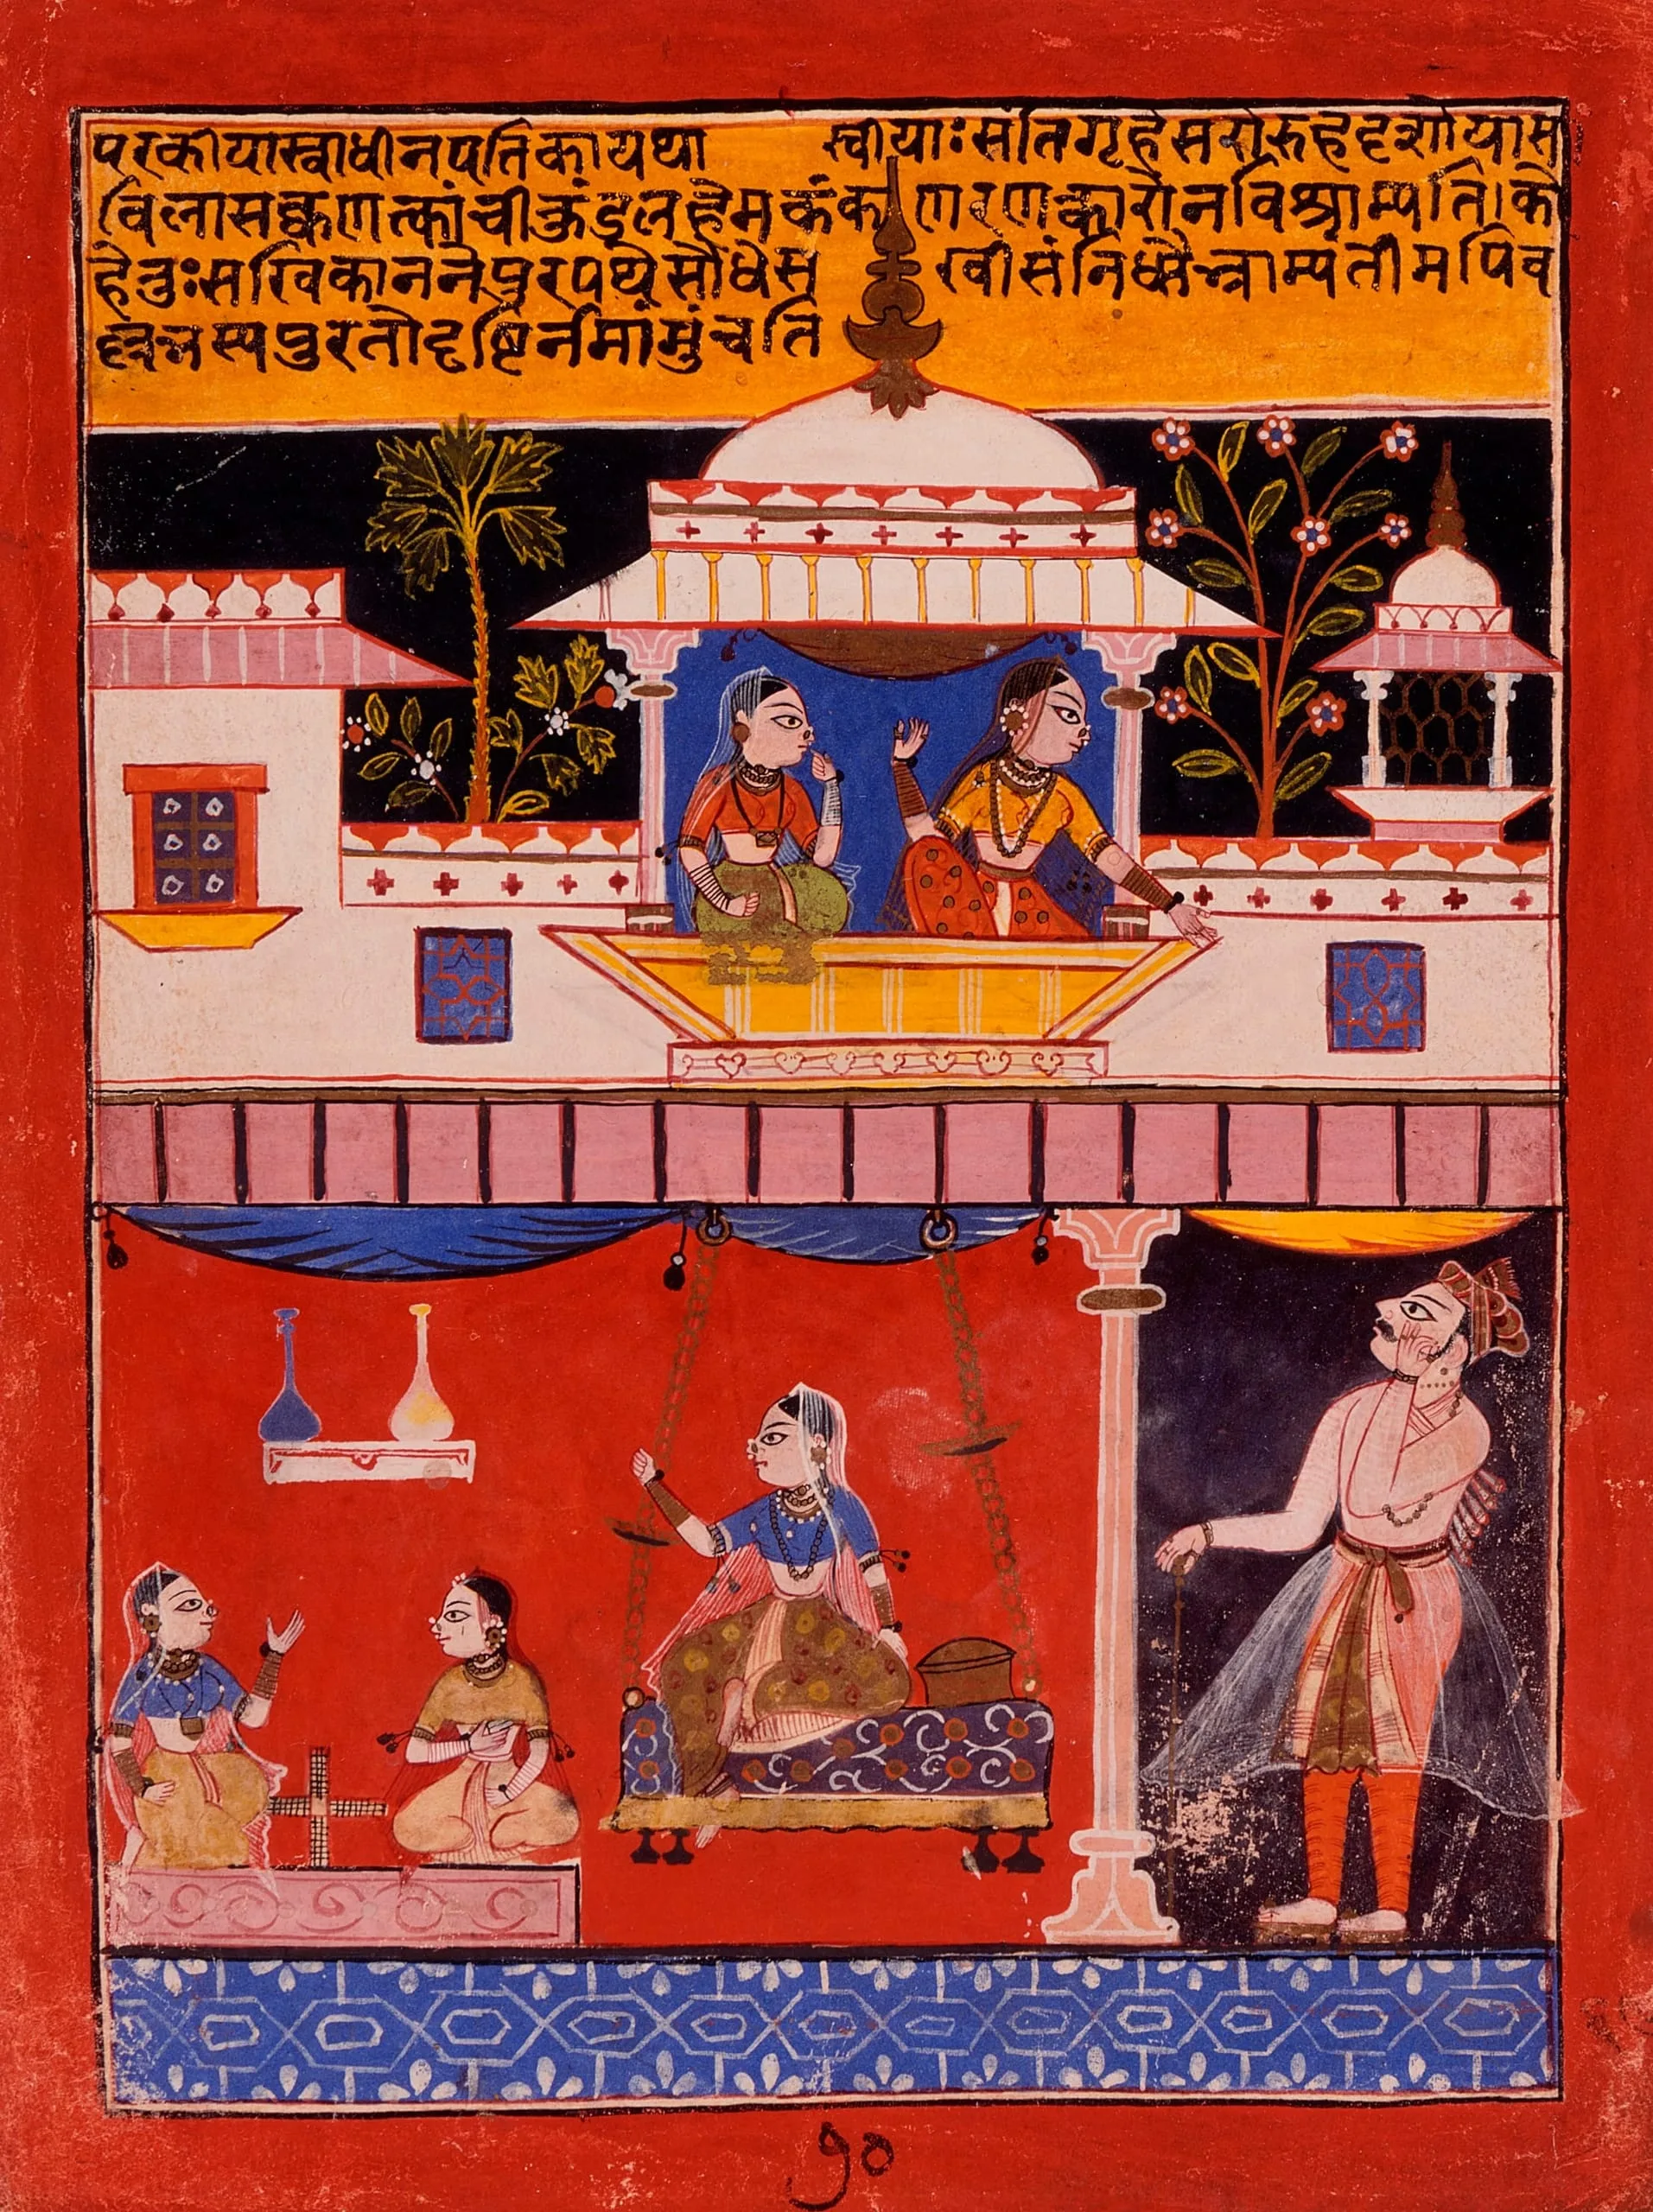 परकीयास्वाधीनपतिकायथा स्वीयाःसंतिगृहेसरोरुहदृशोयास
विलासक्वणत्कांचीकुंडलहेमकंकणरणत्कारोनविश्राम्यति।को
हेतुःसखिकाननेपुरपथेसौधेस खीसंनिधौभ्राम्यंतीमपिव
ल्लभस्यपुरतोदृष्टिर्नमांमुंचति
७०